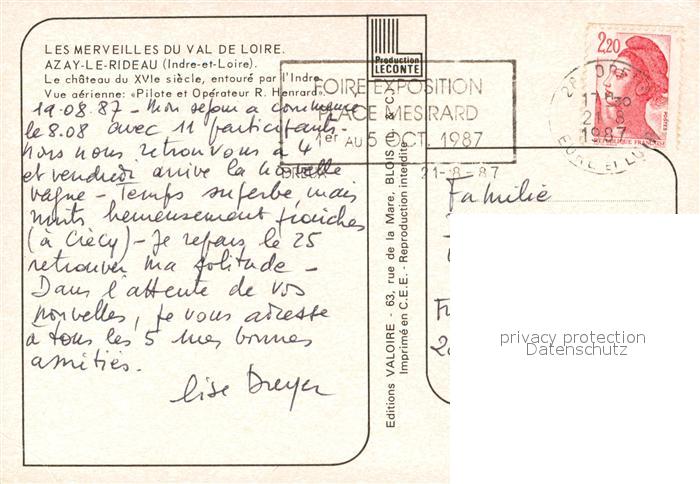 LES MERVEILLES DU VAL DE LOIRE.
AZAY-LE-RIDEAU (Indre-et-Loire).
Le château du XVIe siècle, entouré par l'Indre.
Vue aérienne: «Pilote et Opérateur R. Henrard»
Production
LECONTE
19.08.87 - Mon séjour a commencé
le 8.08 avec 11 participants.
nous retrouvons à 4
et vendredi arrive la nouvelle
vague - Temps superbe, mais
nuits heureusement fraîches
(à Crécy) - Je repars le 25
retrouver ma solitude -
Dans l'attente de vos
nouvelles, je vous adresse
à tous les 5 mes bonnes
amitiés.
Lise Dreyer
Editions VALOIRE - 63, rue de la Mare, BLOIS (L. & C.)
Imprimé en C.E.E. - Reproduction interdite
FOIRE EXPOSITION
PLACE MESIRARD
1er AU 5 OCT. 1987
DREUX
21-8-87
28
17 H 30
21-8
1987
EURE ET LOIR
2,20
POSTES
REPUBLIQUE FRANÇAISE
Familie
privacy protection
Datenschutz